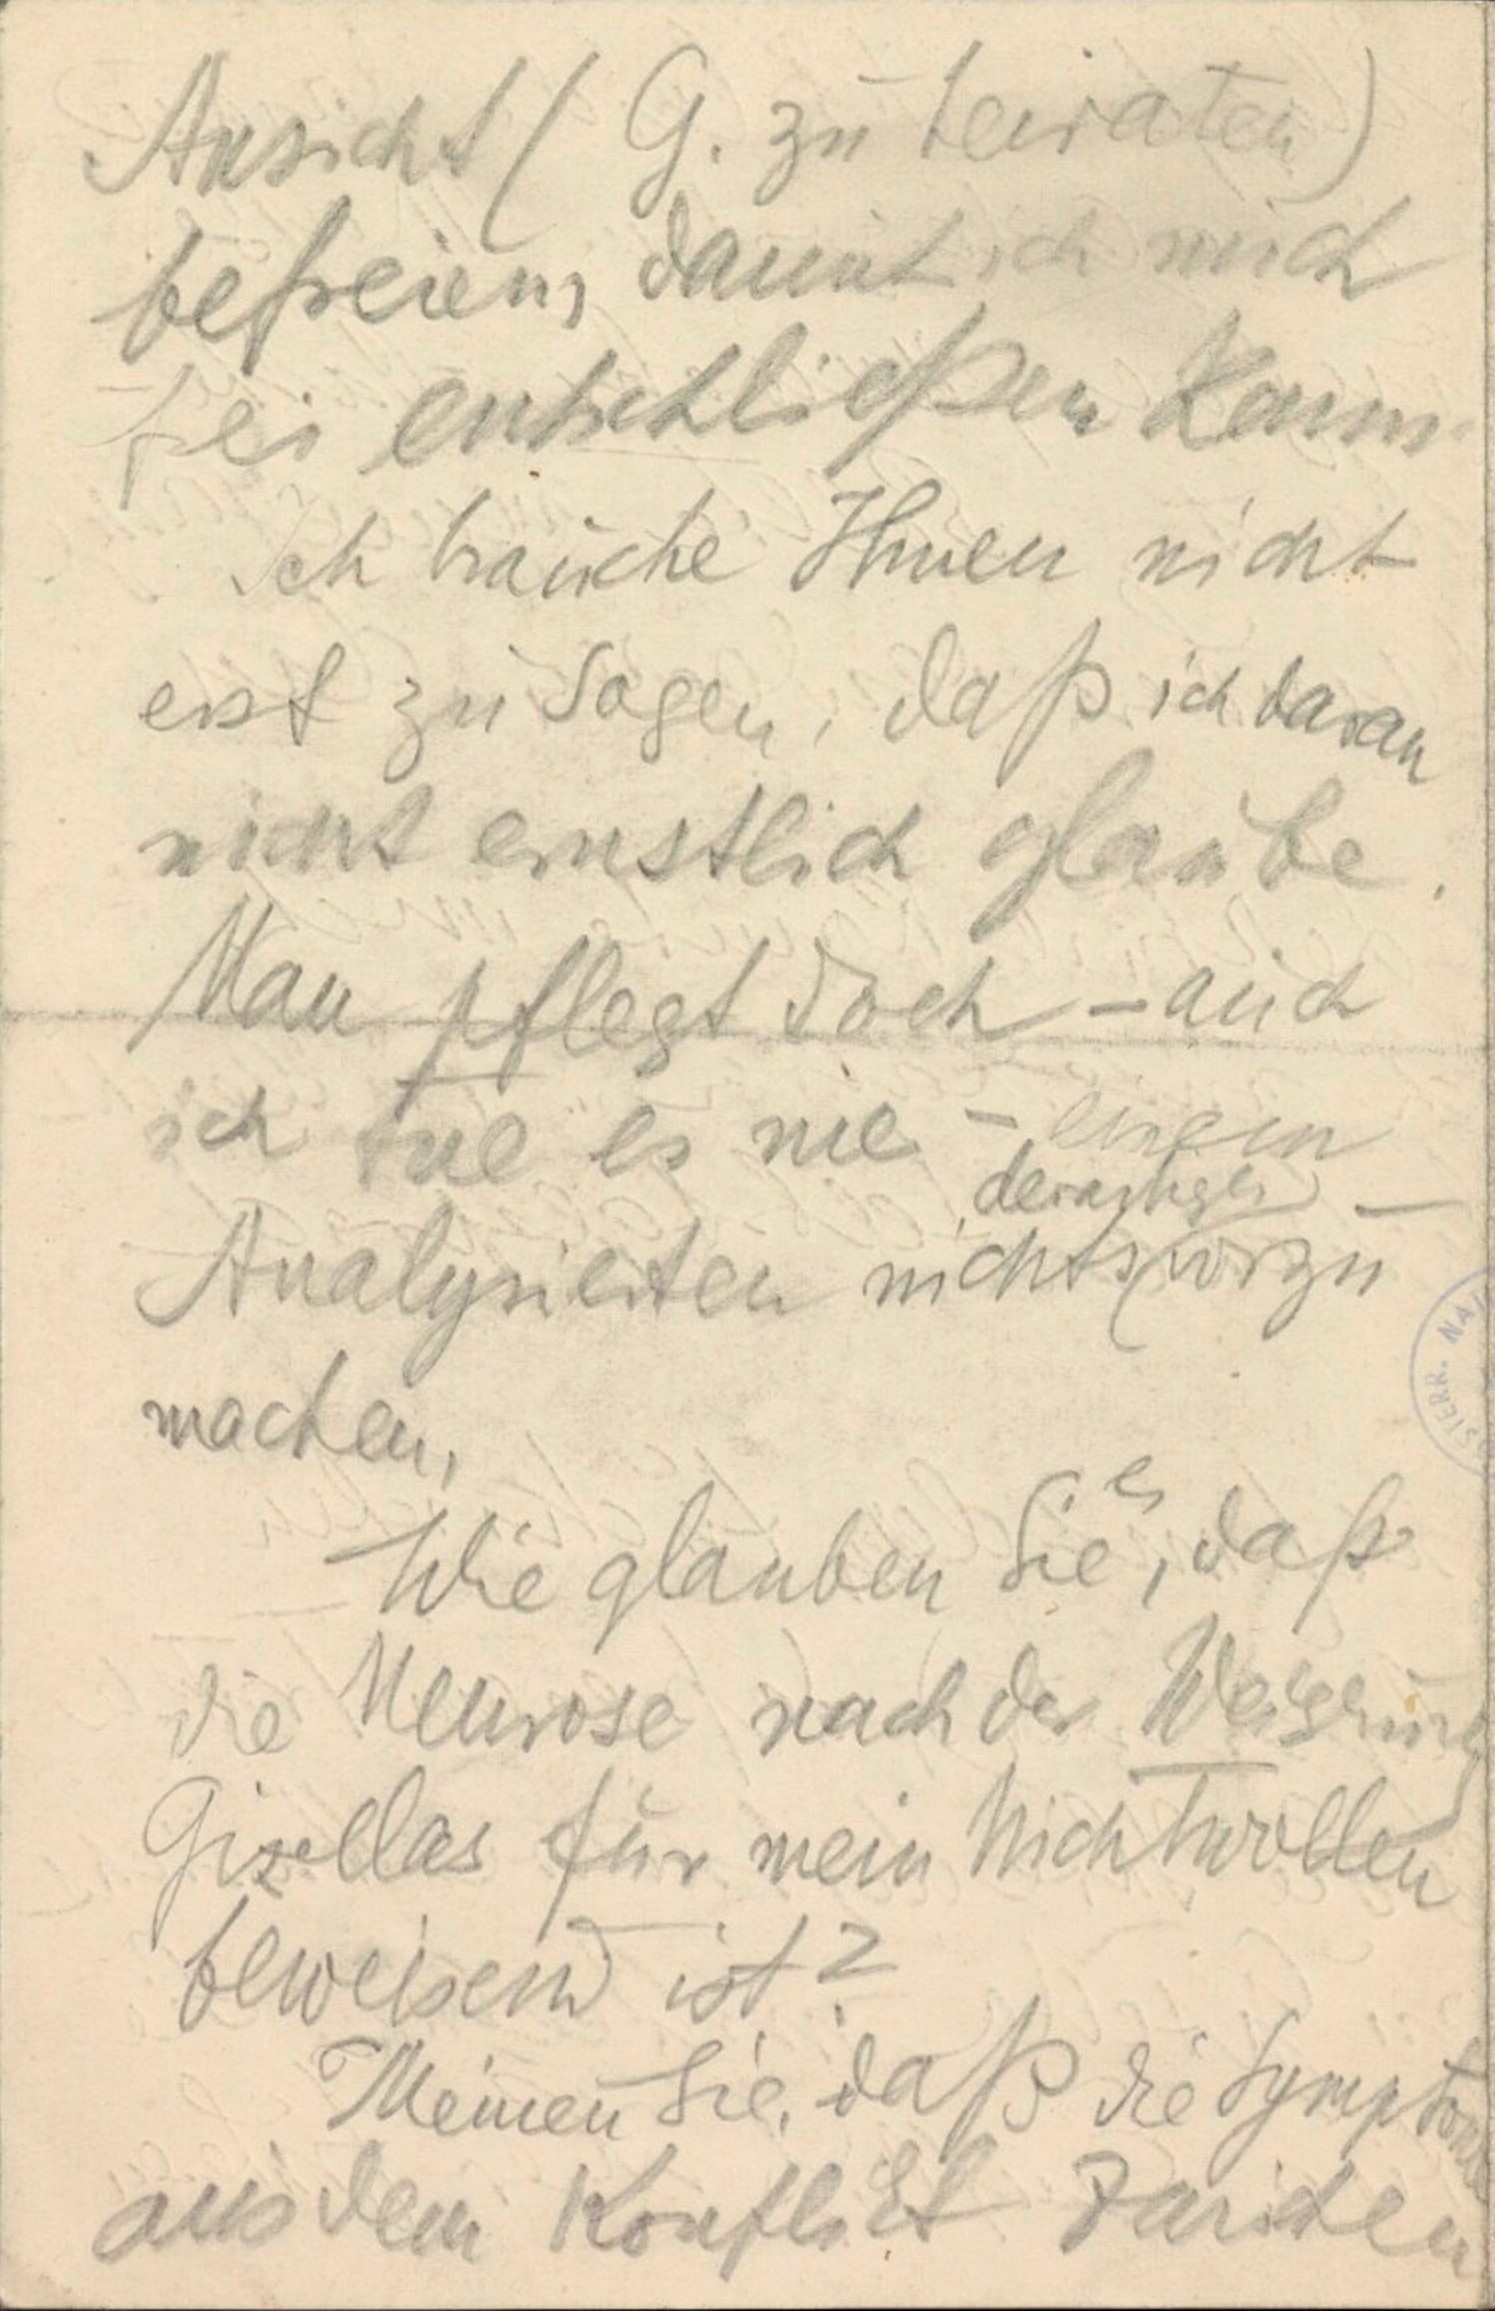 Ansicht (G. zu heiraten)
befreien, damit ich mich
frei entschließen kann.
Ich brauche Ihnen nicht
erst zu sagen, daß ich daran
nicht ernstlich glaube.
Man pflegt doch – auch
ich tue es nie – einem
derartiges –
Analysierten nichts vorzu
machen.
Wie glauben Sie es, daß
die Neurose nach der Weigerung
Gizellas für mein Nichtwollen
beweisend ist?
Meinen Sie, daß die Symptome
aus dem Konflikt zwischen
ÖSTERR. NA